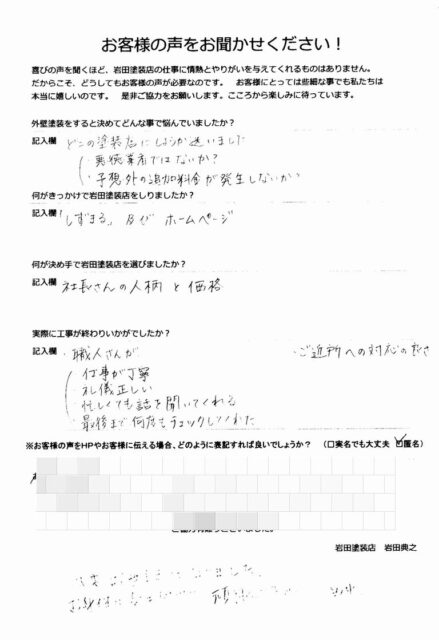 お客様の声をお聞かせください！
喜びの声を聞くほど、岩田塗装店の仕事に情熱とやりがいを与えてくれるものはありません。
だからこそ、どうしてもお客様の声が必要なのです。 お客様にとっては些細な事でも私たちは
本当に嬉しいのです。 是非ご協力をお願いします。こころから楽しみに待っています。
外壁塗装をすると決めてどんな事で悩んでいましたか？
記入欄 どこの塗装店にしようか迷いました
・悪徳業者ではないか？
・予想外の追加料金が発生しないか
何がきっかけで岩田塗装店をしりましたか？
記入欄 「しずまる」及び ホームページ
何が決め手で岩田塗装店を選びましたか？
記入欄 社長さんの人柄 と 価格
実際に工事が終わりいかがでしたか？
記入欄 ・職人さんが ・ご近所への対応の良さ
仕事が丁寧
礼儀正しい
忙しくても話を聞いてくれる
最後まで何度もチェックしてくれた
※お客様の声をHPやお客様に伝える場合、どのように表記すれば良いでしょうか？ （□実名でも大丈夫 ☑匿名）
岩田塗装店 岩田典之